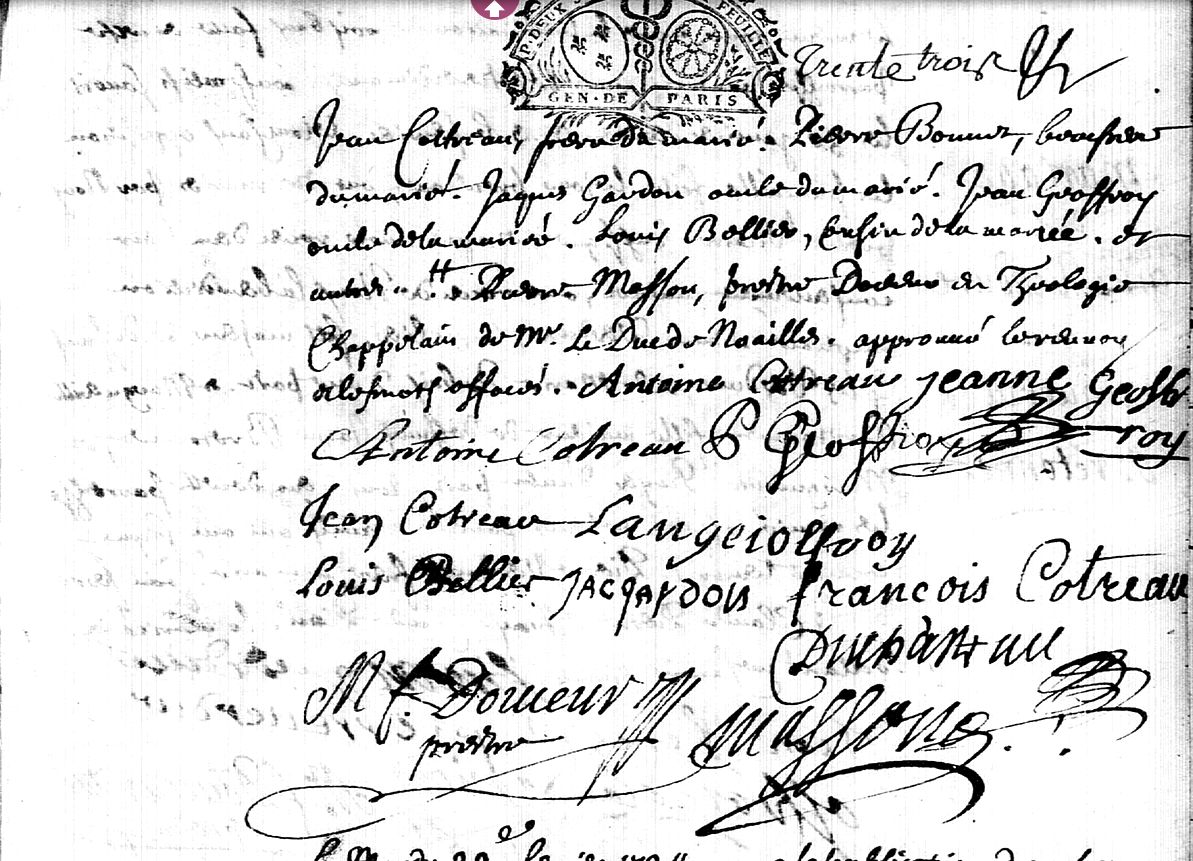 P. DEUX FEUILLE
GEN·DE PARIS
trente trois
Jean Cottreau, frere du marié. Pierre Bonnet, beaufrere
du marié. Jaques Gardon oncle du marié. Jean Geoffroy
oncle de la mariée. Louis Bellier, cousin de la mariée. et
autres. Pierre Masson, prestre Docteur en Theologie
Chappelain de Mr. Le Duc de Noailles. approuvé le renvoy
et les mots effacés. Antoine Cottreau jeanne Geoff
roy
Antoine Cotreau P Geoffroy
Jean Cotreau Langeioffroy
Louis Bellier JACQARDON francois Cotreau
M f. Domeur Masson
prestre